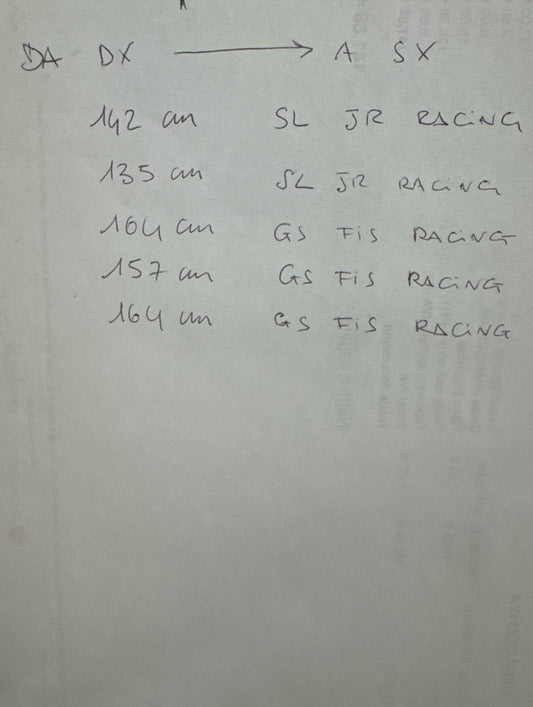 DA DX → A SX
142 cm SL JR RACING
135 cm SL JR RACING
164 cm GS FIS RACING
157 cm GS FIS RACING
164 cm GS FIS RACING